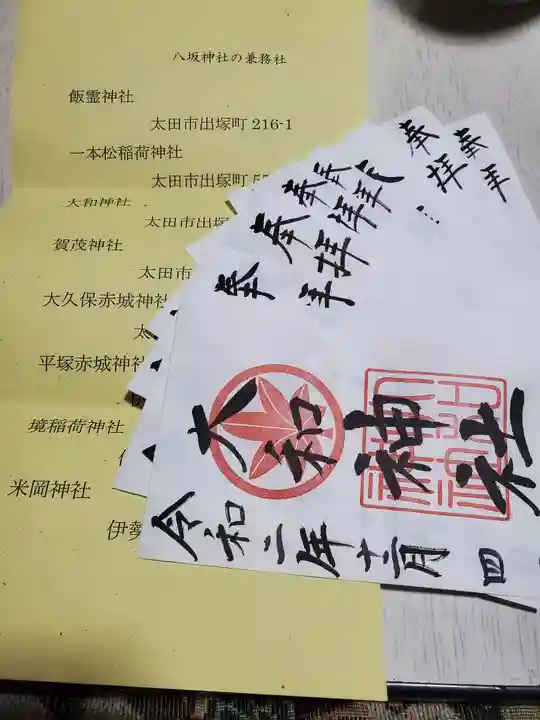 八坂神社の兼務社
飯霊神社
太田市出塚町 216-1
一本松稲荷神社
太田市出塚町 5
大和神社
太田市出塚
賀茂神社
太田市
大久保赤城神社
太
平塚赤城神社
境稲荷神社
伊
米岡神社
伊勢
奉拝
奉拝
奉拝
奉拝
大和神社
令和二年十二月四